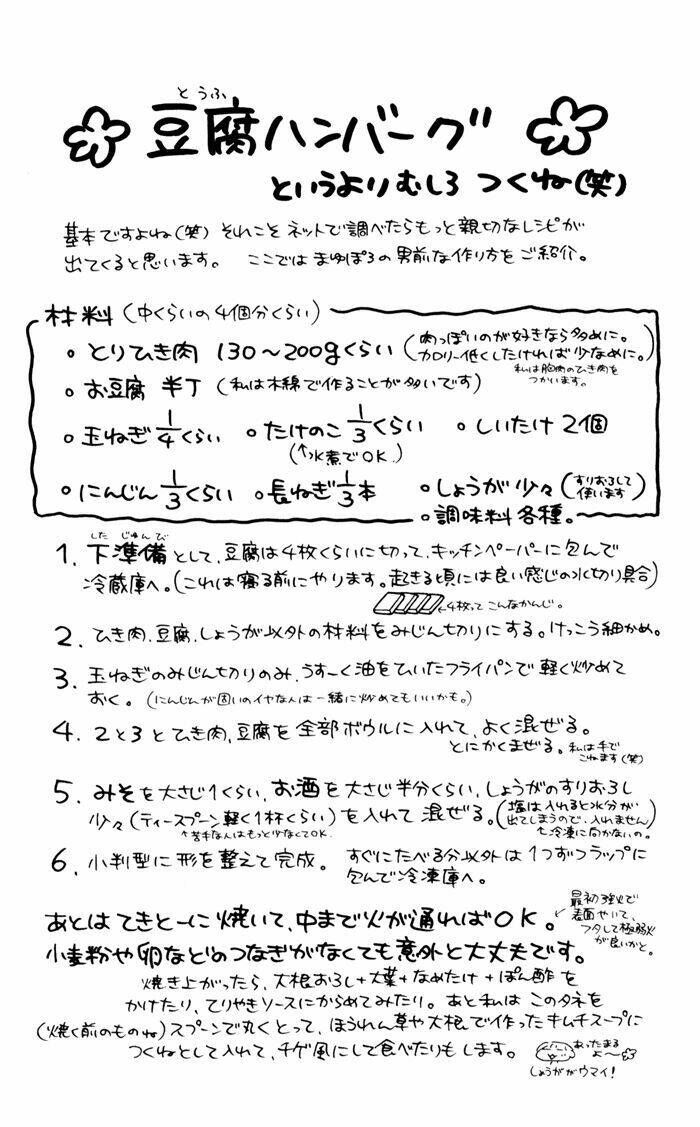 とうふ
豆腐ハンバーグ
というよりむしろ つくね(笑)
基本ですよね(笑) それこそ ネットで調べたらもっと親切なレシピが
出てくると思います。 ここでは まゆぽろの男前な作り方をご紹介。
材料(中くらいの4個分くらい)
。とりひき肉 130～200gくらい (肉っぽいのが好きなら多めに。
カロリー低くしたければ少なめに。)
私は胸肉のひき肉を
つかいます。
。お豆腐 半丁 (私は木綿で作ることが多いです)
。玉ねぎ1/4くらい 。たけのこ1/3くらい 。しいたけ2個
(↑水煮でOK.)
。にんじん1/3くらい 。長ねぎ1/3本 。しょうが少々(すりおろして
使います)
。調味料各種。
した じゅんび
1. 下準備として、豆腐は4枚くらいに切って、キッチンペーパーに包んで
冷蔵庫へ。(これは寝る前にやります。起きる頃には良い感じの水切り具合)
←4枚って こんなかんじ。
2. ひき肉、豆腐、しょうが以外の材料をみじん切りにする。けっこう細かめ。
3. 玉ねぎのみじん切りのみ、うすーく油をひいたフライパンで軽く炒めて
おく。(にんじんが固いのイヤな人は一緒に炒めてもいいかも。)
4. 2と3とひき肉、豆腐を全部ボウルに入れて、よく混ぜる。
とにかくまぜる。私は手で
こねます(笑)
5. みそを大さじ1くらい、お酒を大さじ半分くらい、しょうがのすりおろし
少々(ティースプーン軽く1杯くらい)を入れて 混ぜる。(塩は入れると水分が
出てしまうので、入れません)
↑苦手な人はもっと少なくてOK.
↑冷凍に向かないの。
6. 小判型に形を整えて完成。 すぐにたべる分以外は1つずつラップに
包んで冷凍庫へ。
あとはてきとーに焼いて、中まで火が通ればOK。
最初強火で
表面やいて、
フタして極弱火
が良いかと。
小麦粉や卵などのつなぎがなくても意外と大丈夫です。
焼き上がったら、大根おろし+大葉+なめたけ+ぽん酢を
かけたり、てりやきソースにからめてみたり。あと私は このタネを
(焼く前のものね)スプーンで丸くとって、ほうれん草や大根で作ったキムチスープに
つくねとして入れて、チゲ風にして食べたりもします。
あったまる
よ〜
しょうががウマイ!